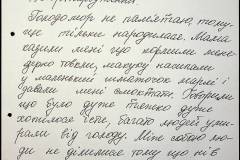 Голодомор не пам'ятаю, тому
що тільки народилася. Мама
казали мені що кормили мене
дерно товсти, макуху насипали
у маленький шматочок марлі і
давали мені смоктати. Говорили
що було дуже тяжко дуже
хотілося їсти, багато людей уми-
рали від голоду. Між собою лю-
ди не ділилися тому що ні в